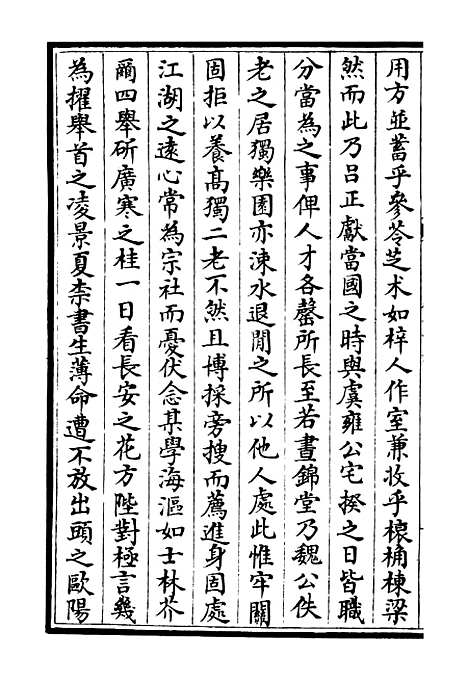 用方並蓄乎參苓芝术如梓人作室兼收乎榱桷棟梁
然而此乃吕正獻當國之時與虞雍公宅揆之日皆職
分當為之事俾人才各罄所長至若晝錦堂乃魏公佚
老之居獨樂園亦涑水退閒之所以他人處此惟牢關
固拒以養髙獨二老不然且博採旁搜而薦進身固處
江湖之逺心常為宗社而憂伏念某學海漚如士林芥
爾四舉斫廣寒之桂一日看長安之花方陛對極言幾
為擢舉首之凌景夏柰書生薄命遭不放出頭之歐陽